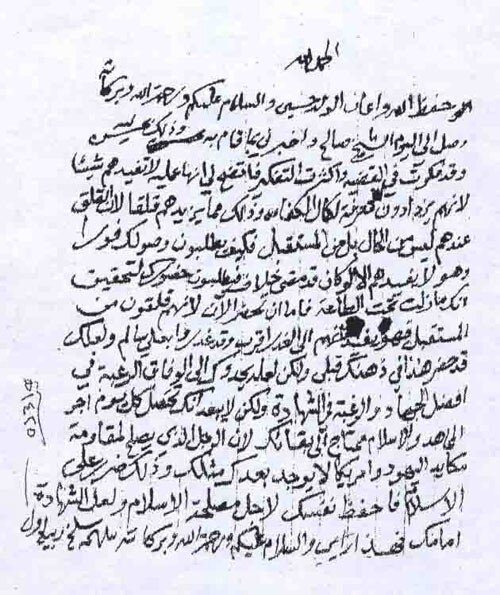 الحمد لله
حفظ الله واعان الولد حسين والسلام عليكم ورحمة الله وبركاته
وصل الي اليوم الشيخ صالح واخبرني بما قام به وذلك
وقد فكرت في القضية واكثرت التفكر فاتضح لي انها عليه لا تفيدهم شيئا
لانهم يزدادون معرفة لكمال الكفاءه وذلك مما يزيدهم قلقا لان القلق
عندهم ليس من الحال بل من المستقبل فكيف يطلبون وصولك فورا
وهو لا يفيدهم الا لو كان قد مضى خلاف فيطلبون حضورك لتحقيق
انك مازلت تحت الطاعة فاما ان تحضر الآن لانهم قلقون من
المستقبل فهو الى الغدر اقرب وقد غدروا بعلي سالم ولعلك
قد حضر هذا في ذهنك قبلي ولكن لعله يحدوك الى الوفاق الرغبة في
افضل الجهاد والرغبة في الشهادة ولكن لا يبعد انك تحصل كل يوم اجر
المجاهد والاسلام محتاج الى بقائك لان الرجل الذي يصلح لمقاومة
مكايد اليهود وامريكا لا يوجد بعدك مثلك وذلك ضرر على
الاسلام فاحفظ نفسك لاجل مصلحة الاسلام ولعل الشهادة
امامك فهذا رأيي والسلام عليكم ورحمة الله وبركاته سلخ ربيع اول